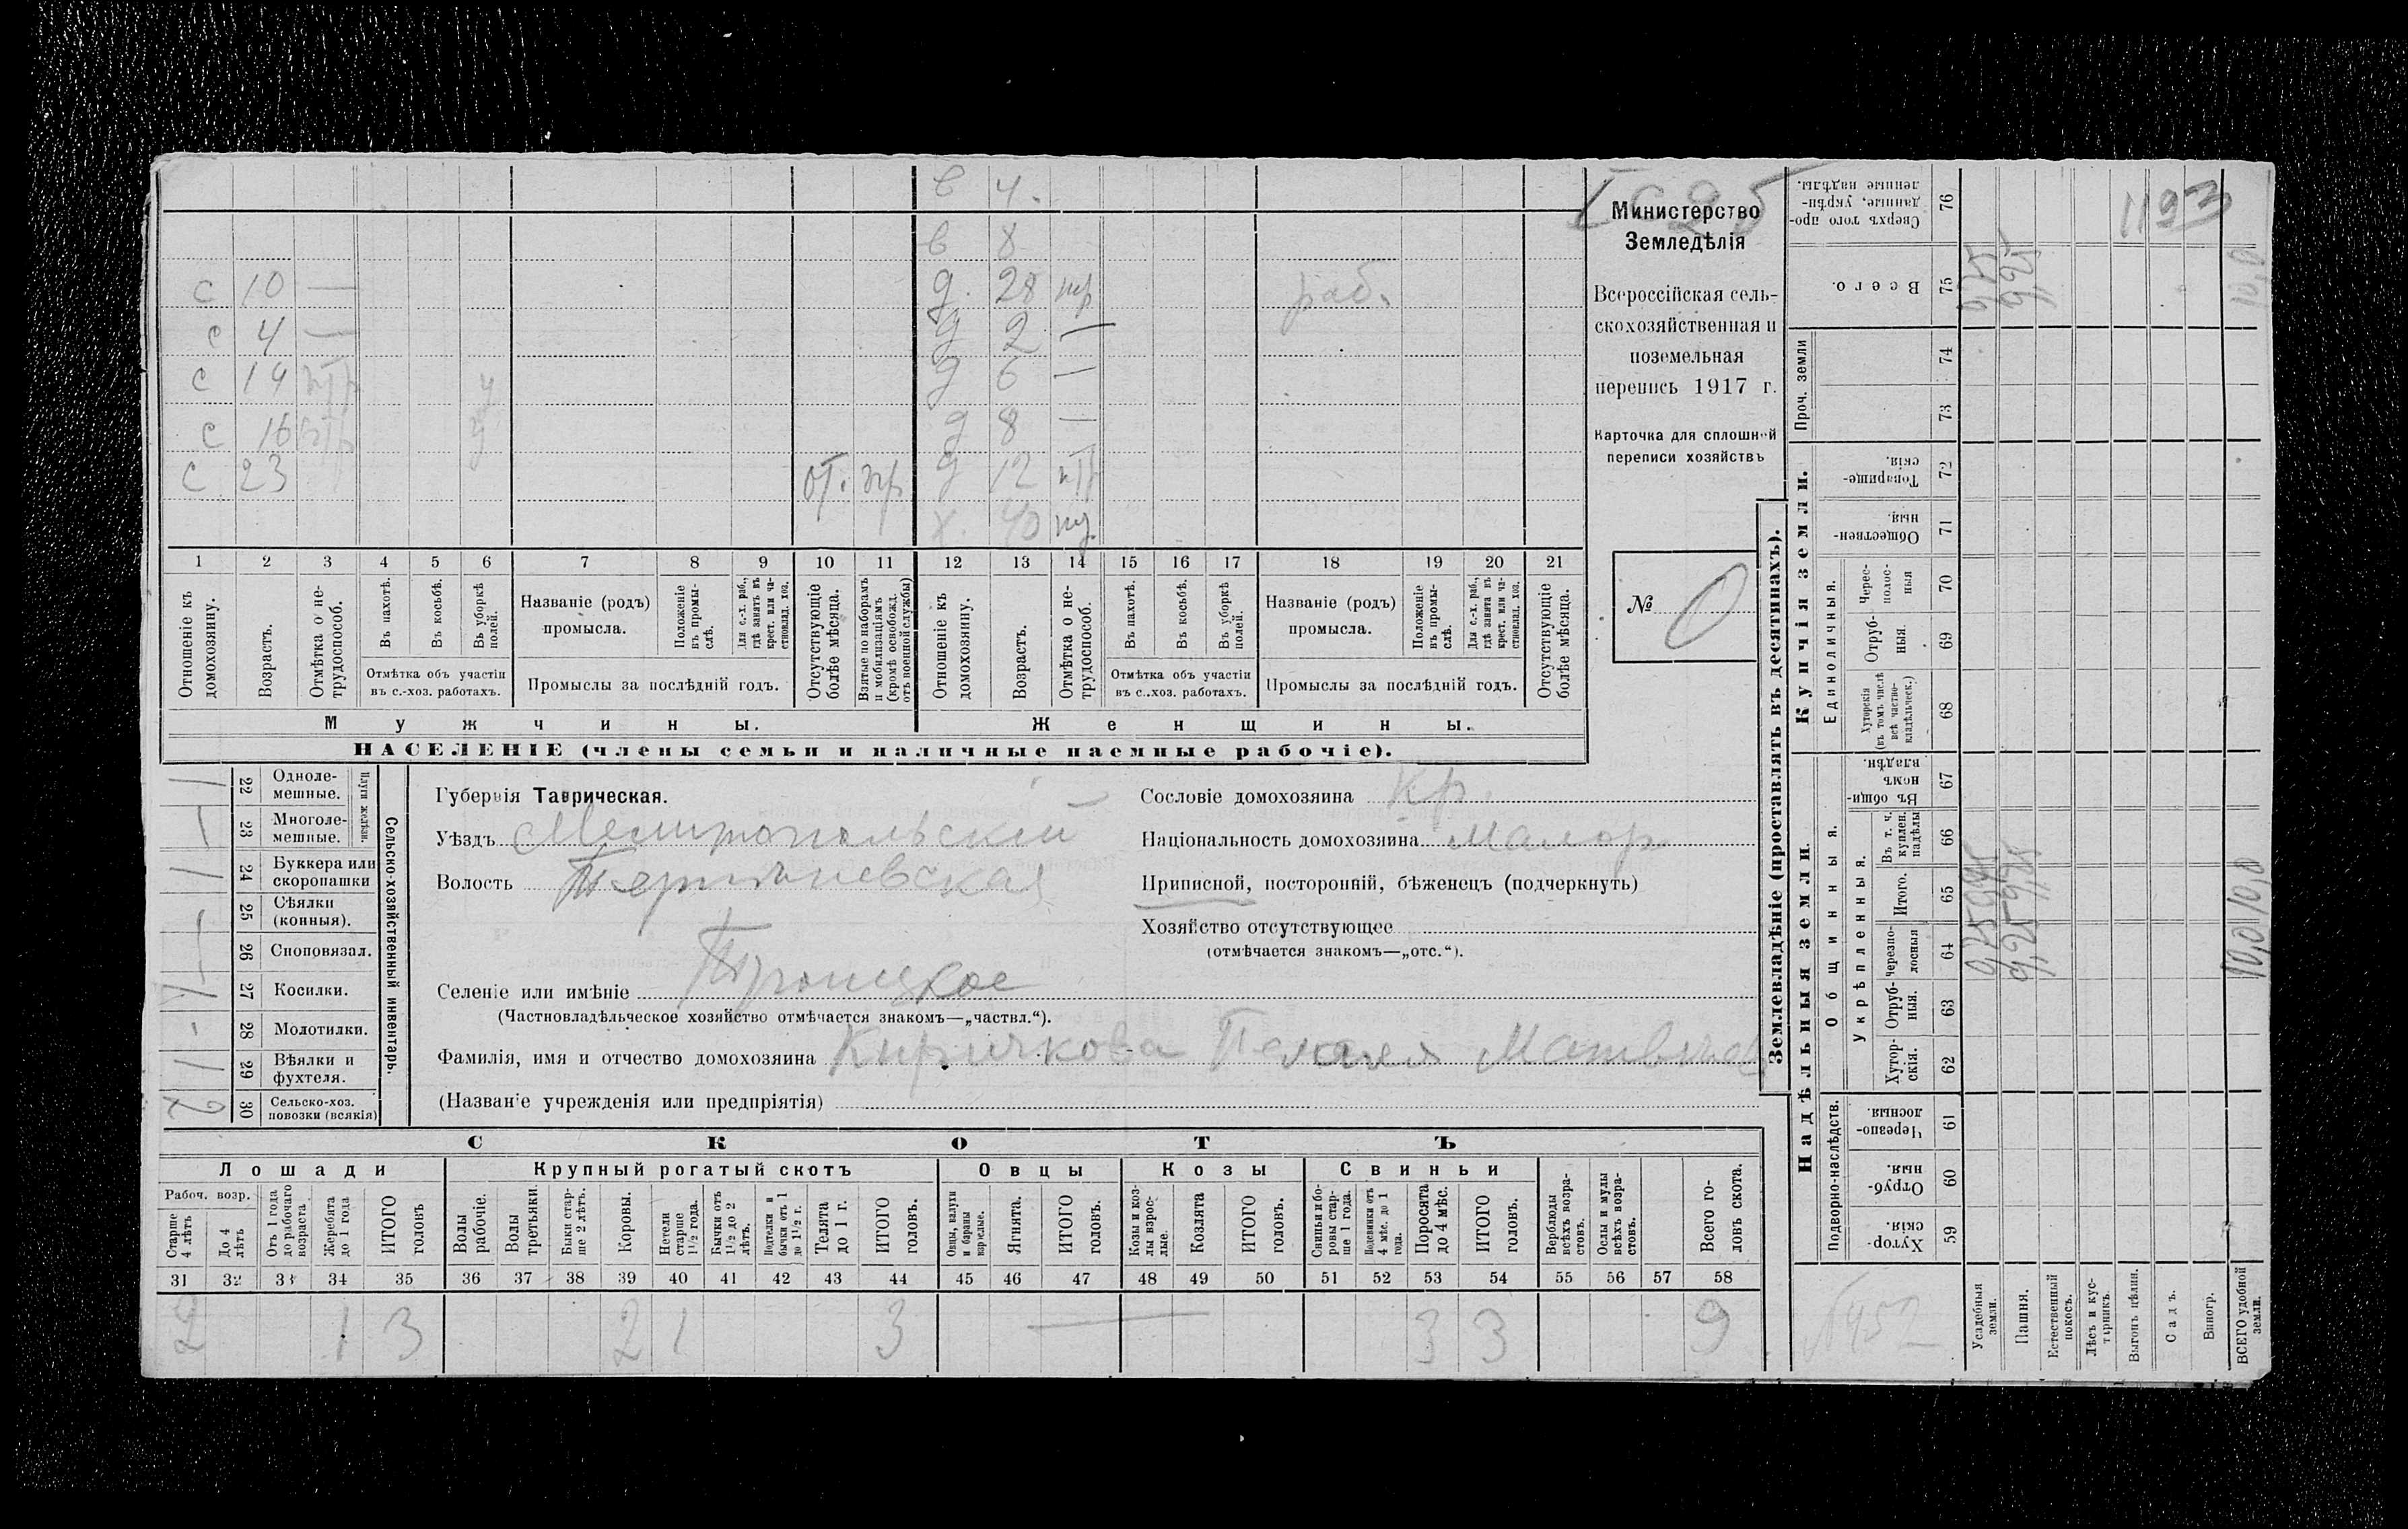 в 4.
в 8
с 10 — д. 28 нр раб.
с 4 — д 2 —
с 14 д 6 —
с 16 д 8 —
с 23 от. нр д 12
х. 40
1 2 3 4 5 6 7 8 9 10 11 12 13 14 15 16 17 18 19 20 21
Отношеніе къ домохозяину.
Возрастъ.
Отмѣтка о не-трудоспособ.
Въ пахотѣ.
Въ косьбѣ.
Въ уборкѣ полей.
Отмѣтка объ участіи
въ с.-хоз. работахъ.
Названіе (родъ)
промысла.
Положеніе въ промы-слѣ.
Для с.-х. раб., гдѣ занятъ въ крест. или ча-стновлад. хоз.
Промыслы за послѣдній годъ.
Отсутствующіе болѣе мѣсяца.
Взятые по наборамъ и мобилизаціямъ (кромѣ освобожд. отъ военной службы)
Отношеніе къ домохозяину.
Возрастъ.
Отмѣтка о не-трудоспособ.
Въ пахотѣ.
Въ косьбѣ.
Въ уборкѣ полей.
Отмѣтка объ участіи
въ с.-хоз. работахъ.
Названіе (родъ)
промысла.
Положеніе въ промы-слѣ.
Для с.-х. раб., гдѣ занята въ крест. или ча-стновлад. хоз.
Промыслы за послѣдній годъ.
Отсутствующіе болѣе мѣсяца.
Мужчины. Женщины.
НАСЕЛЕНІЕ (члены семьи и наличные наемные рабочіе).
Министерство
Земледѣлія
Всероссійская сель-
скохозяйственная и
поземельная
перепись 1917 г.
Карточка для сплошной
переписи хозяйствъ
№ 0
Сельско-хозяйственный инвентарь.
Плуги желѣзн.
22 Одноле-мешные.
23 Многоле-мешные.
24 Буккера или скоропашки
25 Сѣялки (конныя).
26 Сноповязал.
27 Косилки.
28 Молотилки.
29 Вѣялки и фухтеля.
30 Сельско-хоз. повозки (всякія)
Губернія Таврическая.
Уѣздъ Мелитопольскій
Волость
Селеніе или имѣніе Троицкое
(Частновладѣльческое хозяйство отмѣчается знакомъ—„частвл.“).
Фамилія, имя и отчество домохозяина Киричкова Пелагея
(Названіе учрежденія или предпріятія)
Сословіе домохозяина Кр.
Національность домохозяина Малор
Приписной, посторонній, бѣженецъ (подчеркнуть)
Хозяйство отсутствующее
(отмѣчается знакомъ—„отс.“).
СКОТЪ
Лошади Крупный рогатый скотъ Овцы Козы Свиньи
Рабоч. возр.
Старше 4 лѣтъ
До 4 лѣтъ
Отъ 1 года до рабочаго возраста
Жеребята до 1 года
ИТОГО головъ
Волы рабочіе.
Волы третьяки.
Быки стар-ше 2 лѣтъ.
Коровы.
Нетели старше 1½ года.
Бычки отъ 1½ до 2 лѣтъ.
Подтелки и бычки отъ 1 до 1½ г.
Телята до 1 г.
ИТОГО головъ.
Овцы, валухи и бараны взрослые.
Ягнята.
ИТОГО головъ.
Козы и коз-лы взрос-лые.
Козлята
ИТОГО головъ.
Свиньи и бо-ровы стар-ше 1 года.
Подсвинки отъ 4 мѣс. до 1 года.
Поросята до 4 мѣс.
ИТОГО головъ.
Верблюды всѣхъ возра-стовъ.
Ослы и мулы всѣхъ возра-стовъ.
Всего го-ловъ скота.
31 32 33 34 35 36 37 38 39 40 41 42 43 44 45 46 47 48 49 50 51 52 53 54 55 56 57 58
2 1 3 2 1 3 — 3 3 9
Землевладѣніе (проставлять въ десятинахъ).
Купчія земли.
Надѣльныя земли.
Сверхъ того про-данные, укрѣп-ленные надѣлы. 76
Всего. 75
Проч. земли 74 73
Товарище-скія. 72
Обществен-ныя. 71
Единоличныя.
Черес-полос-ныя 70
Отруб-ныя. 69
Хуторскія (въ томъ числѣ всѣ частно-владѣльческ.) 68
Общинныя.
Въ общи-номъ владѣн. 67
Укрѣпленныя.
Въ т. ч. куплен. надѣлы 66
Итого. 65
Черезпо-лосныя 64
Отруб-ныя. 63
Хутор-скія. 62
Подворно-наслѣдств.
Черезпо-лосныя. 61
Отруб-ныя. 60
Хутор-скія. 59
Усадебныя земли.
Пашня.
Естественный покосъ.
Лѣсъ и кус-тарникъ.
Выгонъ цѣлин.
Садъ.
Виногр.
ВСЕГО удобной земли.
1193
9,25
10,0 10,0
10,0